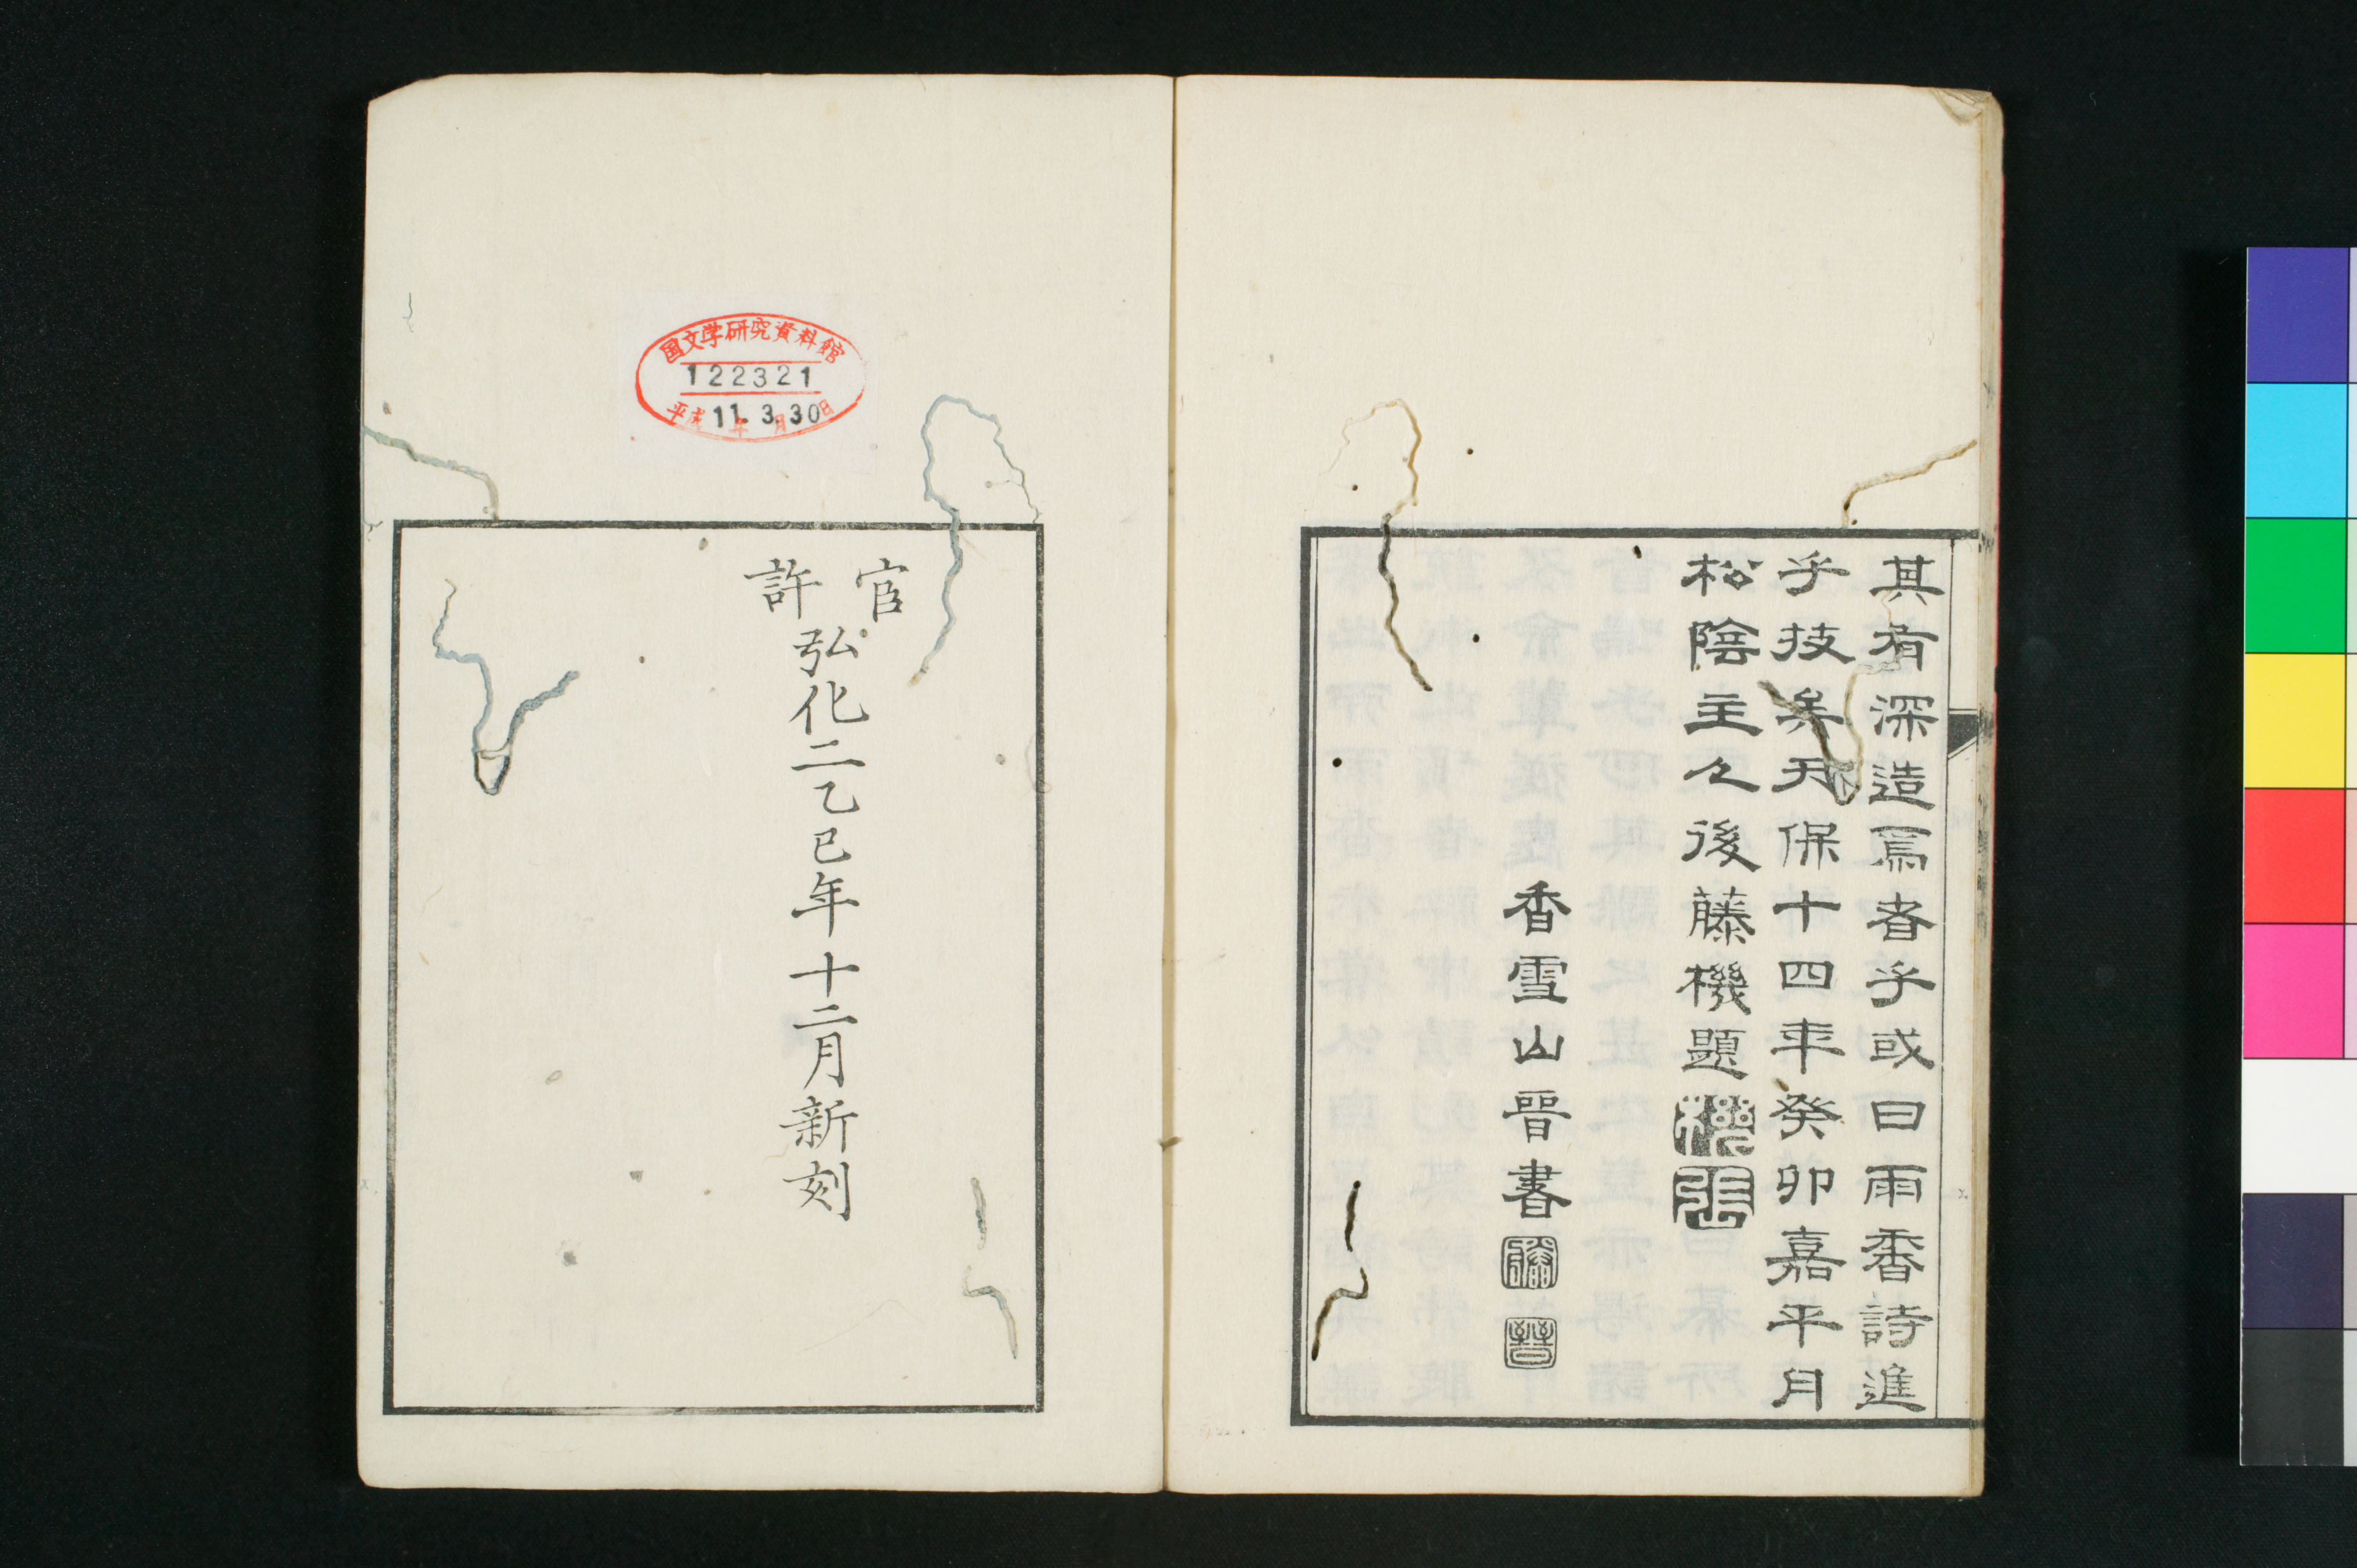 其有深造焉者乎或曰雨香詩進
乎技矣天保十四年癸卯嘉平月
松陰主人後藤機題
香雪山晉書
官
許
弘化二乙巳年十二月新刻
国文学研究資料館
122321
平成11年3月30日